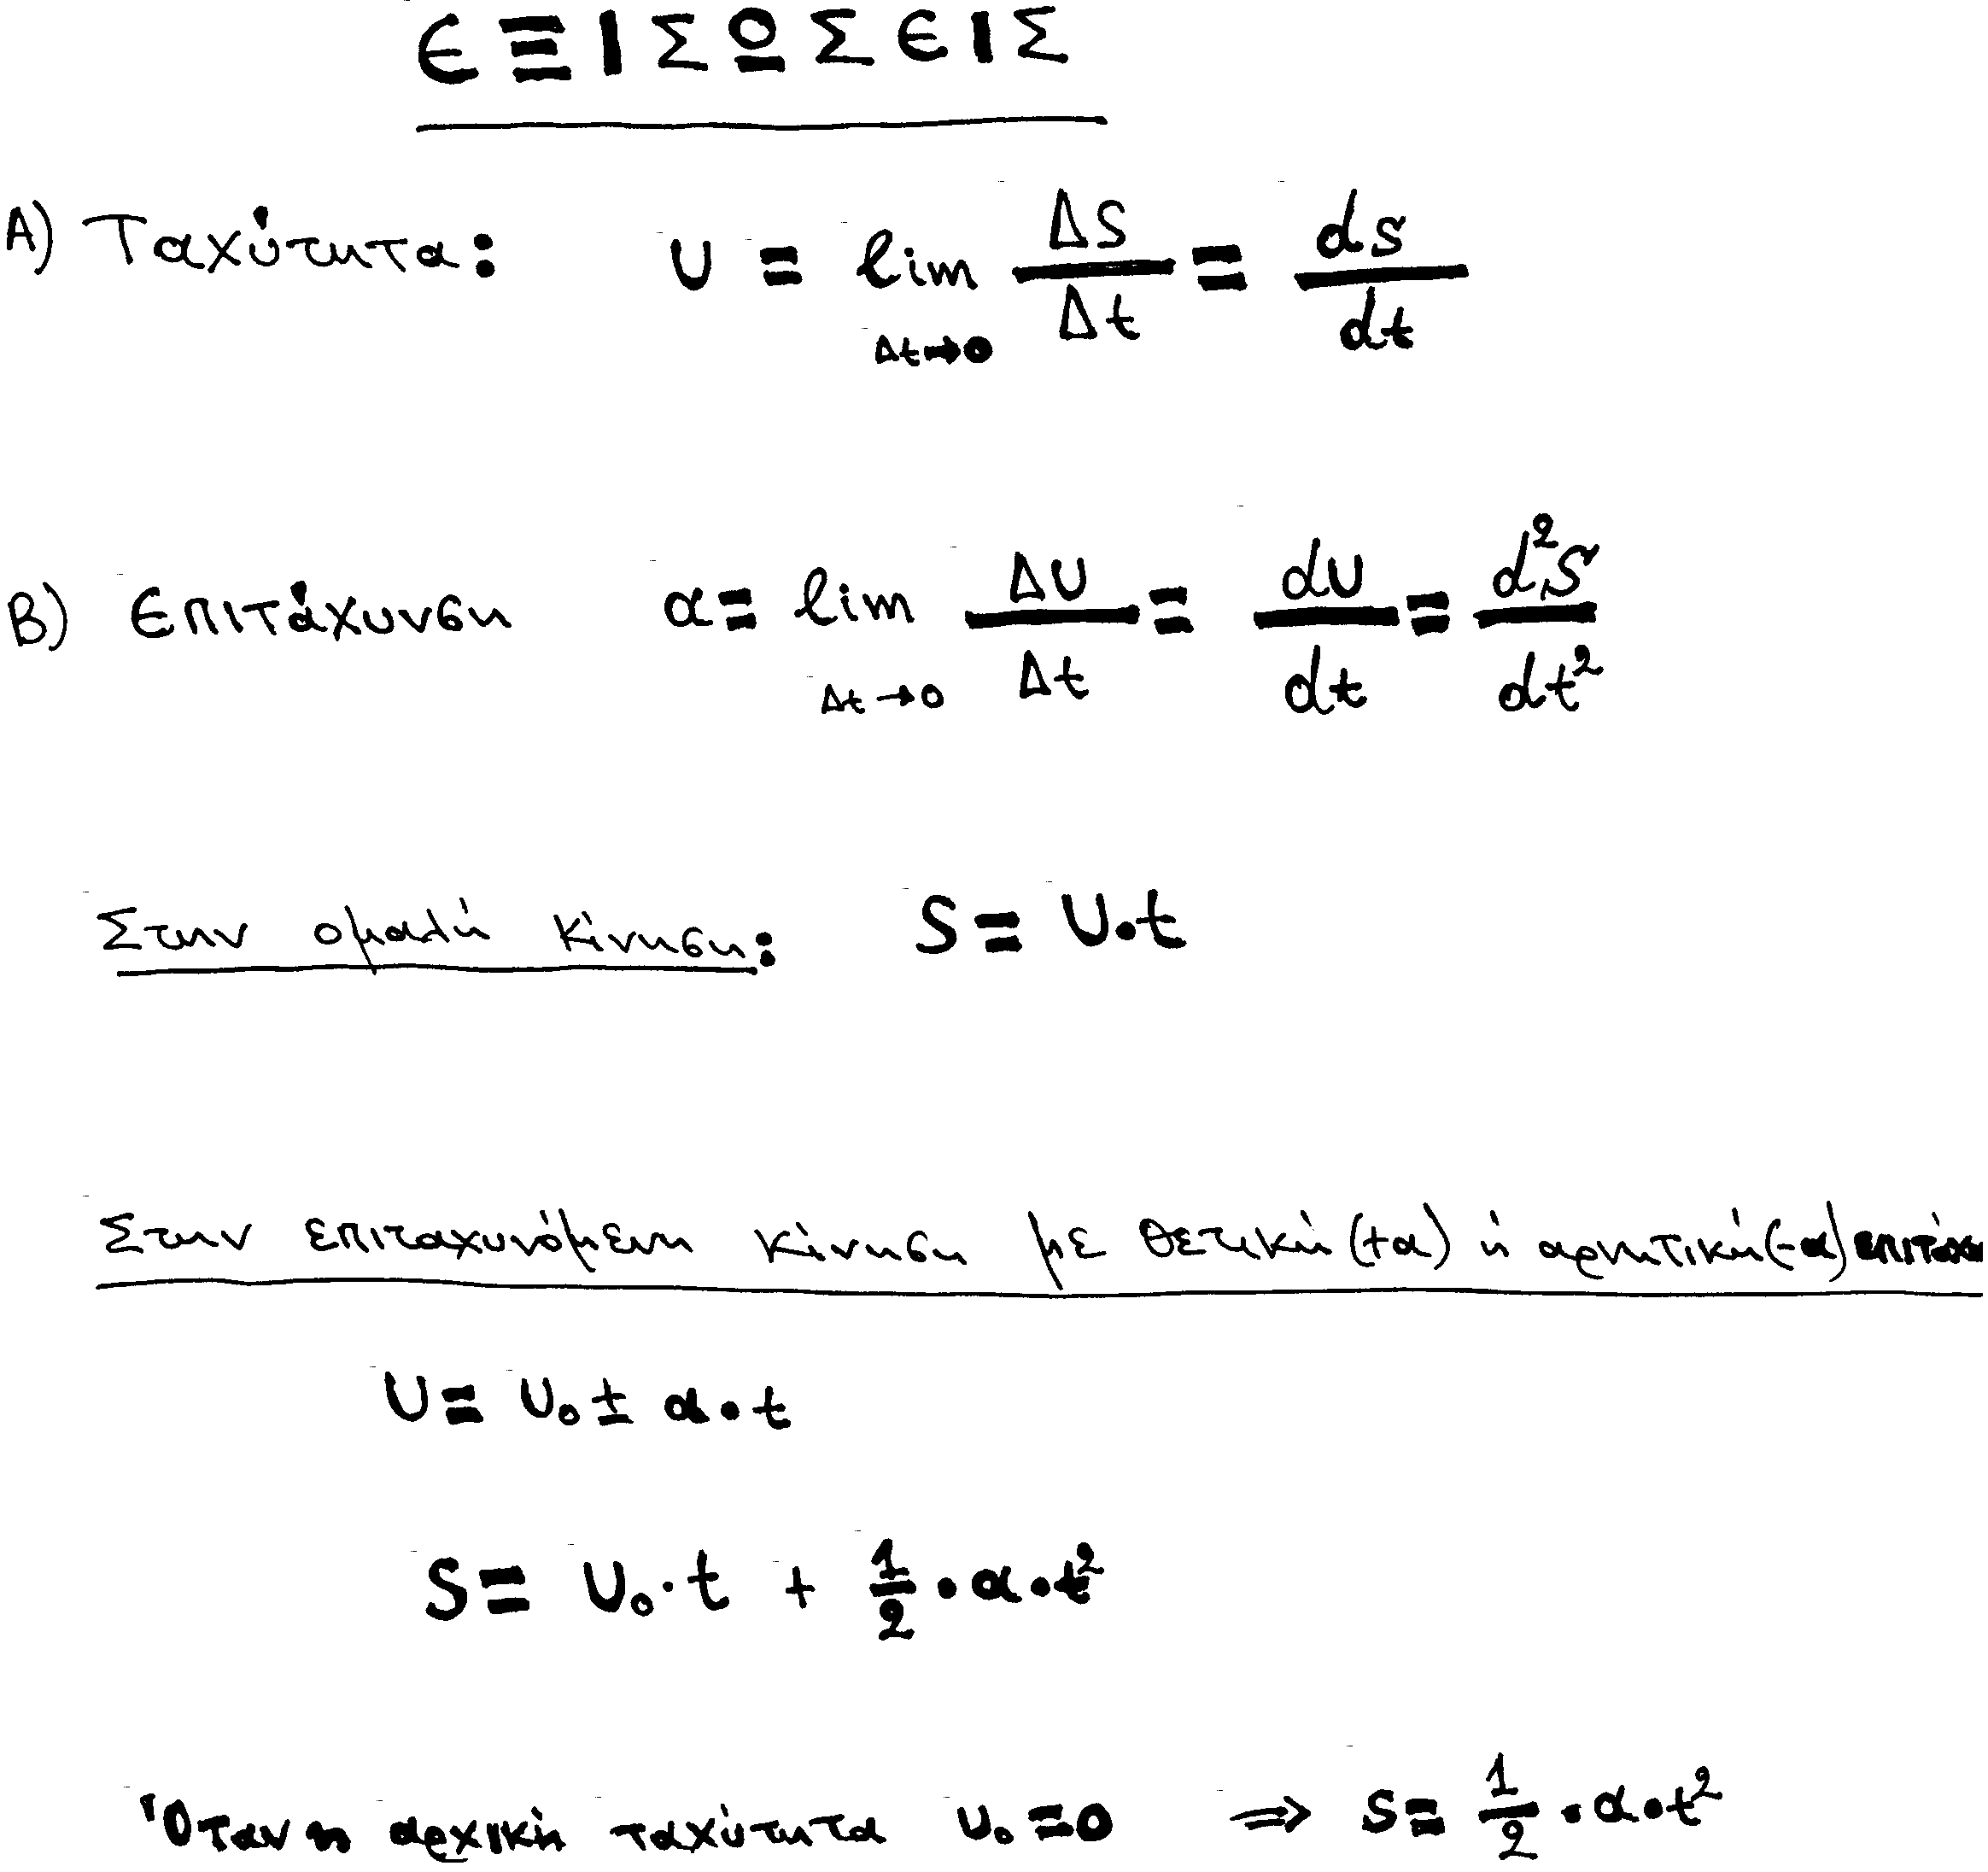 ΕΞΙΣΩΣΕΙΣ
Α) Ταχύτητα: υ = lim Δt→0 ΔS/Δt = ds/dt
Β) Επιτάχυνση α = lim Δt→0 Δυ/Δt = dυ/dt = d²s/dt²
Στην ομαλή κίνηση: S = υ·t
Στην επιταχυνόμενη κίνηση με θετική (+α) ή αρνητική (-α)
υ = υ₀ ± α·t
S = υ₀·t + 1/2·α·t²
Όταν η αρχική ταχύτητα υ₀ = 0 ⇒ S = 1/2·α·t²